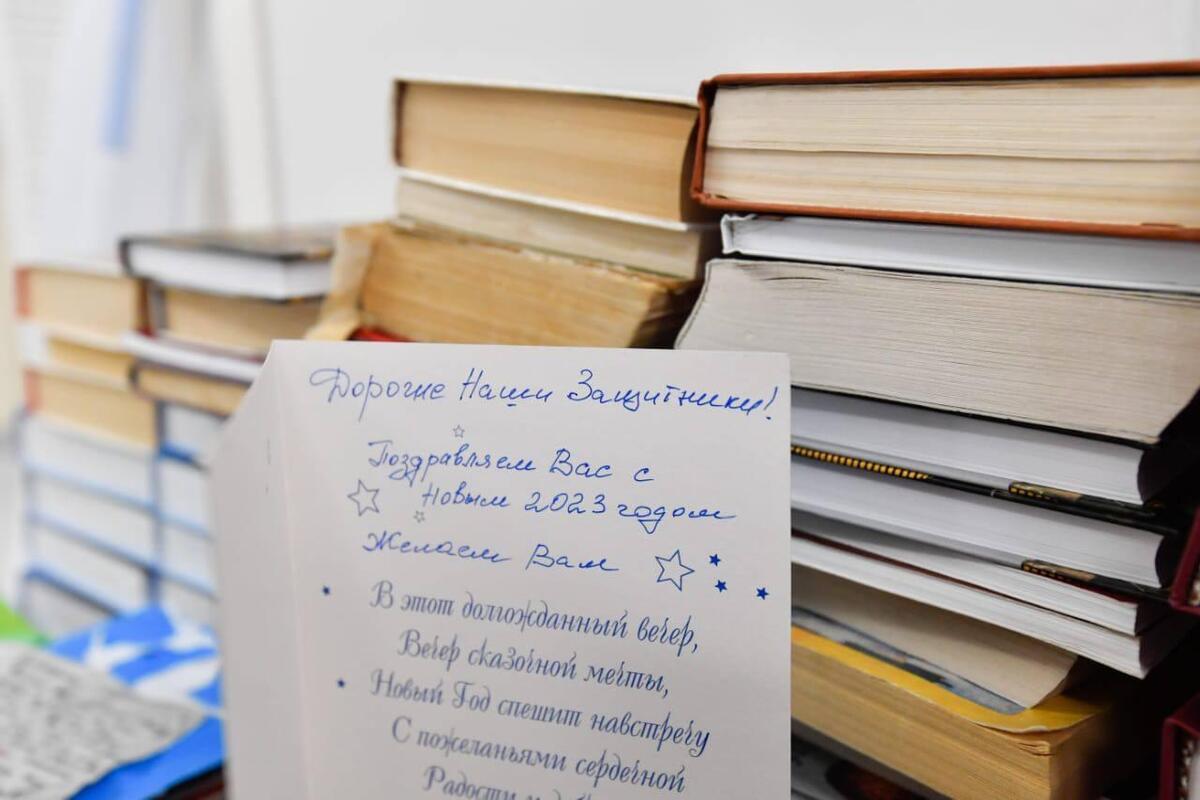 Дорогие Наши Защитники!
Поздравляем Вас с
Новым 2023 годом
Желаем Вам
В этот долгожданный вечер,
Вечер сказочной мечты,
Новый Год спешит навстречу
С пожеланьями сердечной
Радости